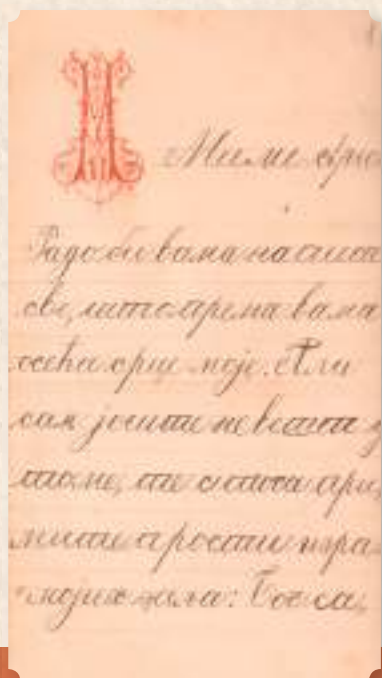 Миле
Радо би вама написа
све, што према вама
осећа срце моје. Али
сам јоште невешт у
томе, те стога при
мите прости изра
мојих жеља: Бог са